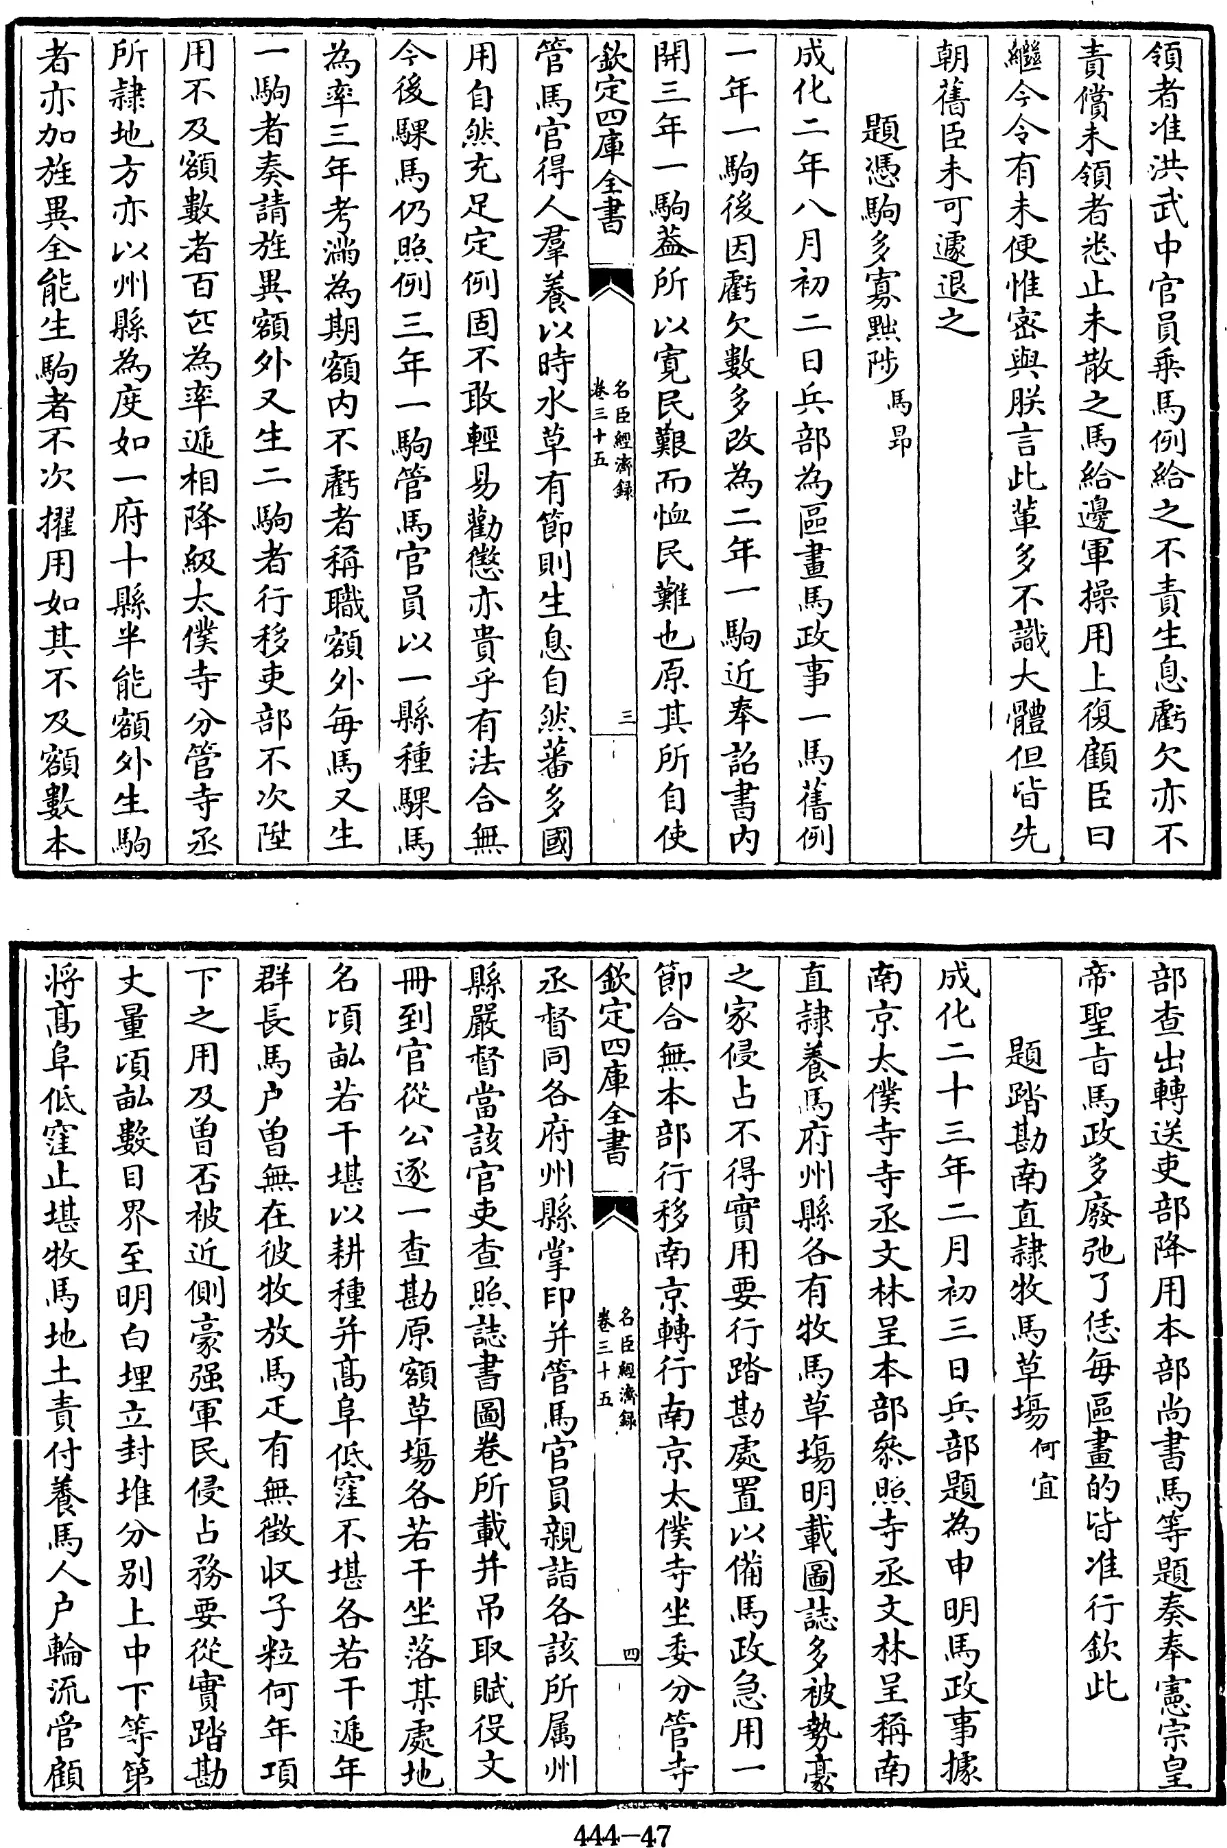 領者准洪武中官員乗馬例給之不責生息虧欠亦不
責償未領者悉止未散之馬給邊軍操用上復顧臣曰
繼今令有未便惟密與朕言此輩多不識大體但皆先
朝舊臣未可遽退之
題慿駒多寡黜陟馬昂
成化二年八月初二日兵部為區畫馬政事一馬舊例
一年一駒後因虧欠數多改為二年一駒近奉詔書内
開三年一駒葢所以寛民艱而恤民難也原其所自使
欽定四庫全書
名臣經濟録
卷三十五
三
管馬官得人羣養以時水草有節則生息自然蕃多國
用自然充足定例固不敢輕易勸懲亦貴乎有法合無
今後騍馬仍照例三年一駒管馬官員以一縣種騍馬
為率三年考滿為期額内不虧者稱職額外每馬又生
一駒者奏請旌異額外又生二駒者行移吏部不次陞
用不及額數者百匹為率遞相降級太僕寺分管寺丞
所隷地方亦以州縣為度如一府十縣半能額外生駒
者亦加旌異全能生駒者不次擢用如其不及額數本
部查出轉送吏部降用本部尚書馬等題奏奉憲宗皇
帝聖旨馬政多廢弛了恁每區畫的皆准行欽此
題踏勘南直隷牧馬草塲何宜
成化二十三年二月初三日兵部題為申明馬政事據
南京太僕寺寺丞文林呈本部叅照寺丞文林呈稱南
直隷養馬府州縣各有牧馬草塲明載圖誌多被勢豪
之家侵占不得實用要行踏勘處置以備馬政急用一
節合無本部行移南京轉行南京太僕寺坐委分管寺
欽定四庫全書
名臣經濟録
卷三十五
四
丞督同各府州縣掌印并管馬官員親詣各該所属州
縣嚴督當該官吏查照誌書圖卷所載并吊取賦役文
冊到官從公逐一查勘原額草塲各若干坐落某處地
名頃畝若干堪以耕種并髙阜低窪不堪各若干遞年
群長馬户曾無在彼牧放馬疋有無徴收子粒何年項
下之用及曾否被近側豪强軍民侵占務要從實踏勘
丈量頃畝數目界至明白埋立封堆分别上中下等第
將髙阜低窪止堪牧馬地土責付養馬人户輪流管顧
444-47